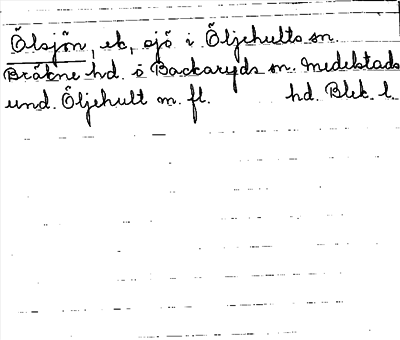 Ölsjön, ek, sjö i Öljehults sn.
Bräkne hd. o Backaryds sn. Medelstads
und. Öljehult m. fl. hd. Blek. l.